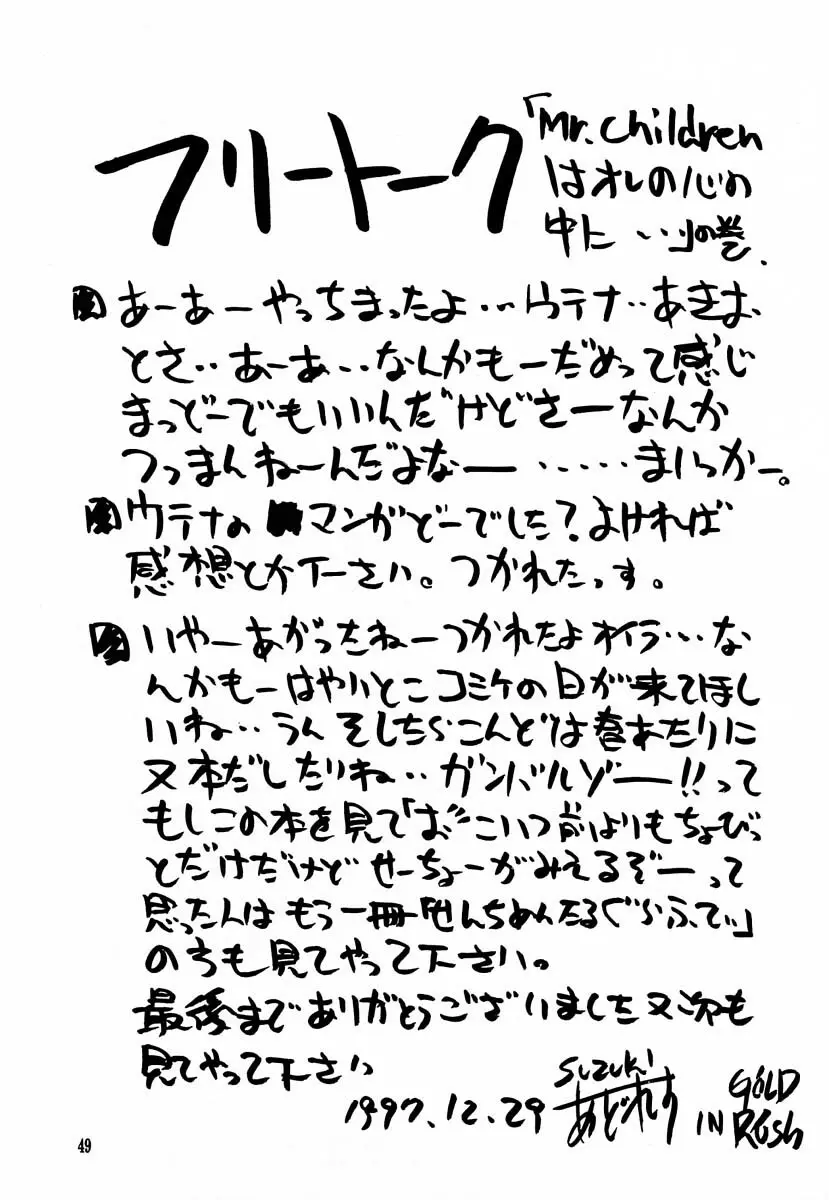 フリートーク
「Mr.Children
はオレの心の
中に・・・」の巻.
あーあーやっちまったよ・・・ウテナ・・あきお
とさ・・あーあ・・・なんかもーだめって感じ
まっどーでもいいんだけどさーなんか
つっまんねーんだよなー・・・・・まいっかー。
ウテナの マンガどーでした？よければ
感想とか下ーさい。つかれたっす。
いやーあがったねーつかれたよオイラ・・・な
んかもーはやいとこコミケの日が来てほし
いね・・うん そしたらこんどは春あたりに
又本だしたいね・・ガンバルゾー!!って
もしこの本を見て「おっこいつ前よりもちょびっ
とだけだけどせーちょーがみえるぞーって
思った人はもう一冊「せんちめんたるぐらふてぃ」
のうも見てやって下さい。
最後までありがとうございました又次も
見てやって下さい
1997.12.29
SUZUKI
あどれす
GOLD
IN RUSh
49